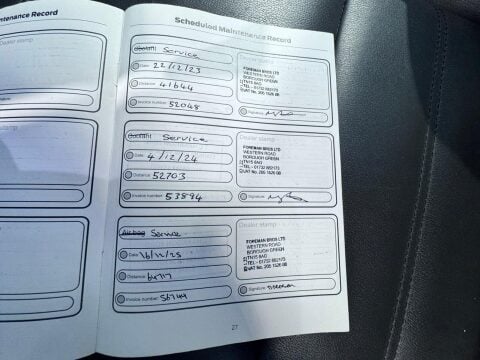 Maintenance Record
Dealer stamp
Scheduled Maintenance Record
Service
Date 22/12/23
Distance 41644
Invoice number 52048
Dealer stamp
FOREMAN BROS LTD
WESTERN ROAD
BOROUGH GREEN
TN15 8AG
TEL - 01732
VAT No. 205 1526 08
Signature
Service
Date 4/12/24
Distance 52703
Invoice number 53894
Dealer stamp
FOREMAN BROS LTD
WESTERN ROAD
BOROUGH GREEN
TN15 8AG
TEL - 01732
VAT No. 205 1526 08
Signature
Airbag Service
Date 16/12/25
Distance
Invoice number
Dealer stamp
FOREMAN BROS LTD
WESTERN ROAD
BOROUGH GREEN
TN15 8AG
TEL - 01732
VAT No. 205 1526 08
Signature
27